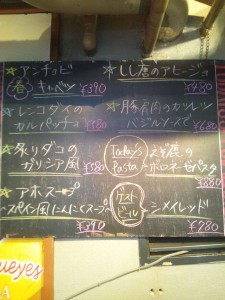 ☆アンチョビ
春キャベツ ¥390
☆レンコダイの
カルパッチョ ¥580
☆炙りダコの
ガリシア風 ¥580
☆アホスープ
〜スペイン風にんにくスープ〜
¥390
☆しし唐のアヒージョ
¥480
☆豚肩肉のカツレツ
バジルソースで ¥680
Today's
Pasta
ボロネーゼパスタ
¥880
ゲスト
ビール
シメイレッド
¥780
ueyes